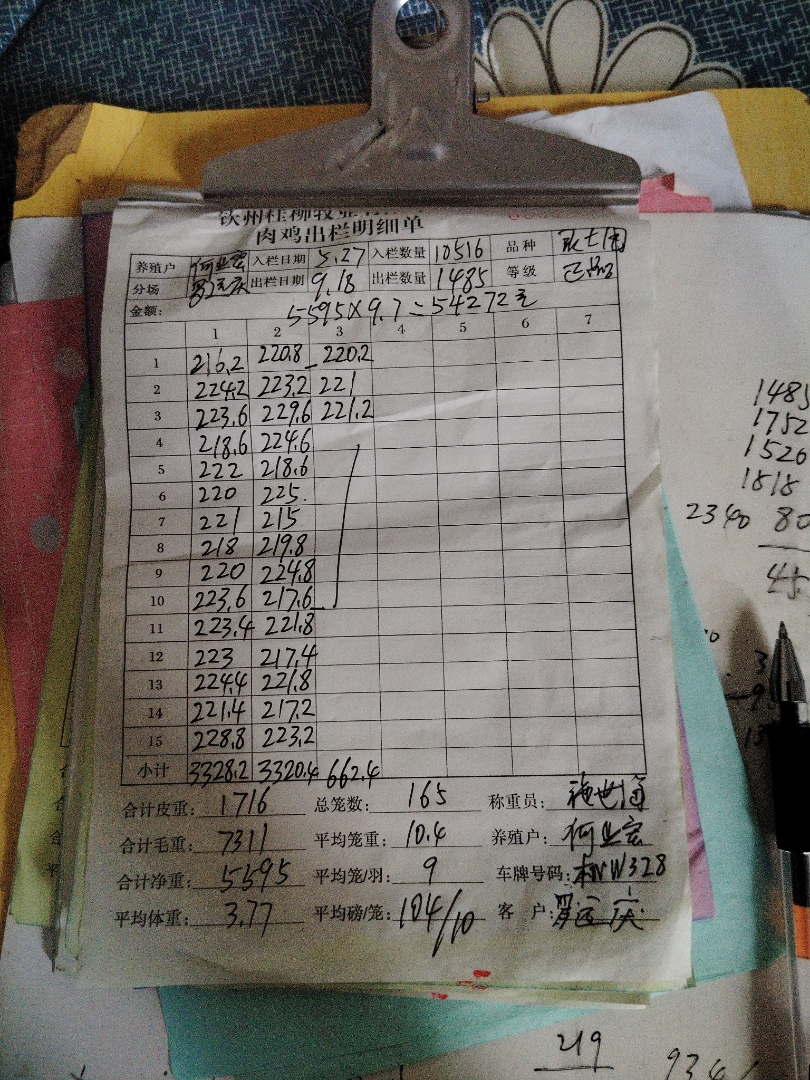 肉鸡出栏明细单
养殖户 何业宏 入栏日期 5.27 入栏数量 10516 品种
分场 出栏日期 9.18 出栏数量 1485 等级 正品
金额: 5595×9.7=54272元
1 2 3 4 5 6 7
1 216.2 220.8 220.2
2 224.2 223.2 221
3 223.6 229.6 221.2
4 218.6 224.6
5 222 218.6
6 220 225.
7 221 215
8 218 219.8
9 220 224.8
10 223.6 217.6
11 223.4 221.8
12 223 217.4
13 224.4 221.8
14 221.4 217.2
15 228.8 223.2
小计 3328.2 3320.4 662.4
合计皮重: 1716 总笼数: 165 称重员:
合计毛重: 7311 平均笼重: 10.4 养殖户: 何业宏
合计净重: 5595 平均笼/羽: 9 车牌号码: 桂NW328
平均体重: 3.77 平均磅/笼: 104/10 客 户: 罗运庆
1485
1752
1526
1818
2340 80
45
219